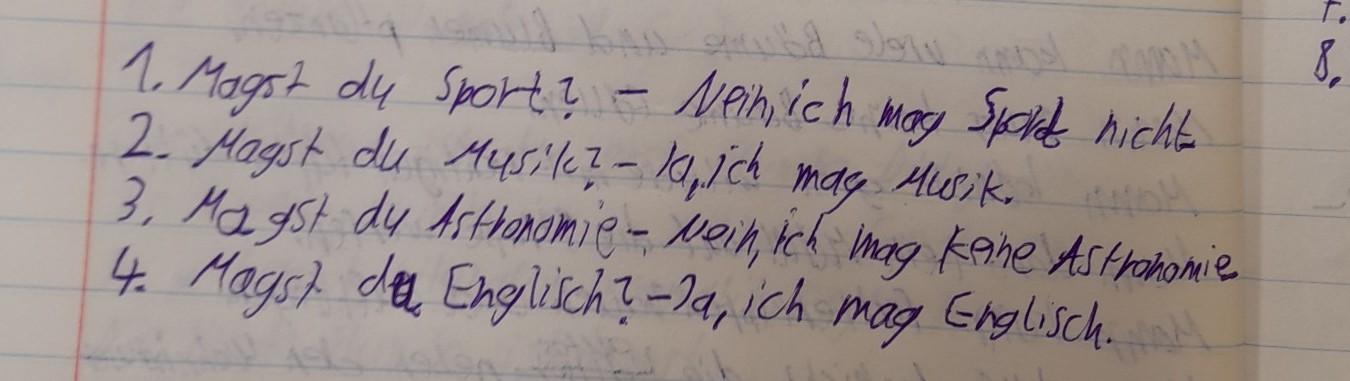 1. Magst du Sport? - Nein, ich mag Sport nicht
2. Magst du Musik? - Ja, ich mag Musik.
3. Magst du Astronomie - Nein, ich mag keine Astronomie
4. Magst du Englisch? - Ja, ich mag Englisch.
8.